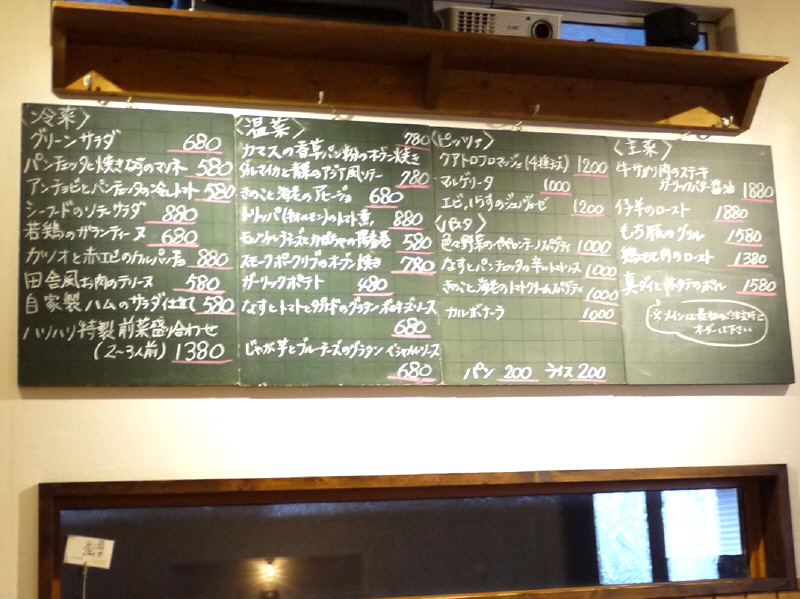 〈冷菜〉
グリーンサラダ 680
パンチェッタと焼きなすのマリネ 580
アンチョビとパンチェッタの冷トマト 580
シーフードのソテーサラダ 880
若鶏のガランティーヌ 680
カツオと赤エビのカルパッチョ 880
田舎風お肉のテリーヌ 580
自家製ハムのサラダ仕立て 580
ハツハリ特製前菜盛り合わせ
(2〜3人前) 1380
〈温菜〉
カマスの香草パン粉のオーブン焼き 780
ダルマイカと 780
きのこと海老のアヒージョ 680
トリッパ のトマト煮 880
モッツァレラチーズとかぼちゃの春巻 580
スモークポークリブのオーブン焼き 780
ガーリックポテト 480
なすとトマトと のグラタン ボロネーズソース
680
じゃが芋とブルーチーズのグラタン ベシャメルソース
680
〈ピッツァ〉
クアトロフロマッジョ(4種チーズ) 1200
マルゲリータ 1000
エビ、しらすのジェノベーゼ 1200
〈パスタ〉
色々野菜のペペロンチーノスパゲティ 1000
なすとパンチェッタの辛いトマトソース 1000
きのこと海老のトマトクリームスパゲティ 1000
カルボナーラ 1000
パン 200 ライス 200
〈主菜〉
牛サガリ肉のステーキ
ガーリックバター醤油 1880
仔羊のロースト 1880
もち豚のグリル 1580
鶏もも肉のロースト 1380
真ダイとホタテのポワレ 1580
※メインは最初のご注文時に
オーダーして下さい